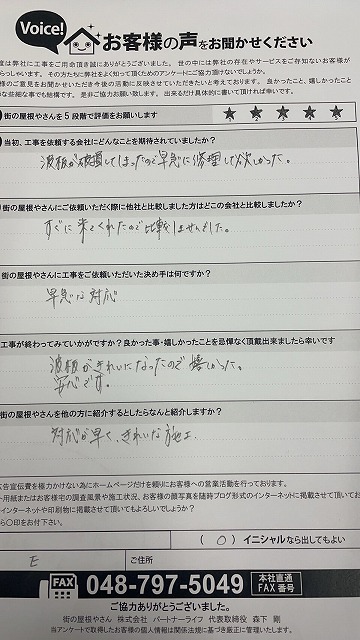 Voice!
お客様の声をお聞かせください
度は弊社に工事をご用命頂き誠にありがとうございました。世の中には弊社の存在やサービスをご存知ないお客様が
らっしゃいます。その方たちに弊社をよく知って頂くためのアンケートにご協力頂けないでしょうか。
様のご意見をお聞かせいただき今後の活動に反映させていただきたいと考えております。良かったこと、嬉しかったこと
な些細な事でも結構です。是非ご協力お願い致します。出来るだけ具体的に書いて頂ければ幸いです。
街の屋根やさんを5段階で評価をお願いします
★ ★ ★ ★ ★
当初、工事を依頼する会社にどんなことを期待されていましたか?
波板が破損してしまったので早急に修理して欲しかった。
街の屋根やさんにご依頼いただく際に他社と比較しました方はどこの会社と比較しましたか?
すぐに来てくれたので比較しませんでした。
街の屋根やさんに工事をご依頼いただいた決め手は何ですか?
早急な対応
工事が終わってみていかがですか?良かった事・嬉しかったことを忌憚なく頂戴出来ましたら幸いです
波板がきれいになったので嬉しかった。
安心です。
街の屋根やさんを他の方に紹介するとしたらなんと紹介しますか?
対応が早く、きれいな施工
広告宣伝費を極力かけない為にホームページだけを頼りにお客様への営業活動を行っております。
ト用紙またはお客様宅の調査風景や施工状況、お客様の顔写真を随時ブログ形式のインターネットに掲載させて頂いてお
インターネットや印刷物に掲載させて頂いてもよろしいでしょうか?
ら〇印をお付下さい。
(○)イニシャルなら出してもよい
E
ご住所
FAX 048-797-5049 本社直通 FAX番号
ご協力ありがとうございました。
街の屋根やさん 株式会社 パートナーライフ 代表取締役 森下 剛
当アンケートで取得したお客様の個人情報は関係法規に基づき厳正に管理いたします。